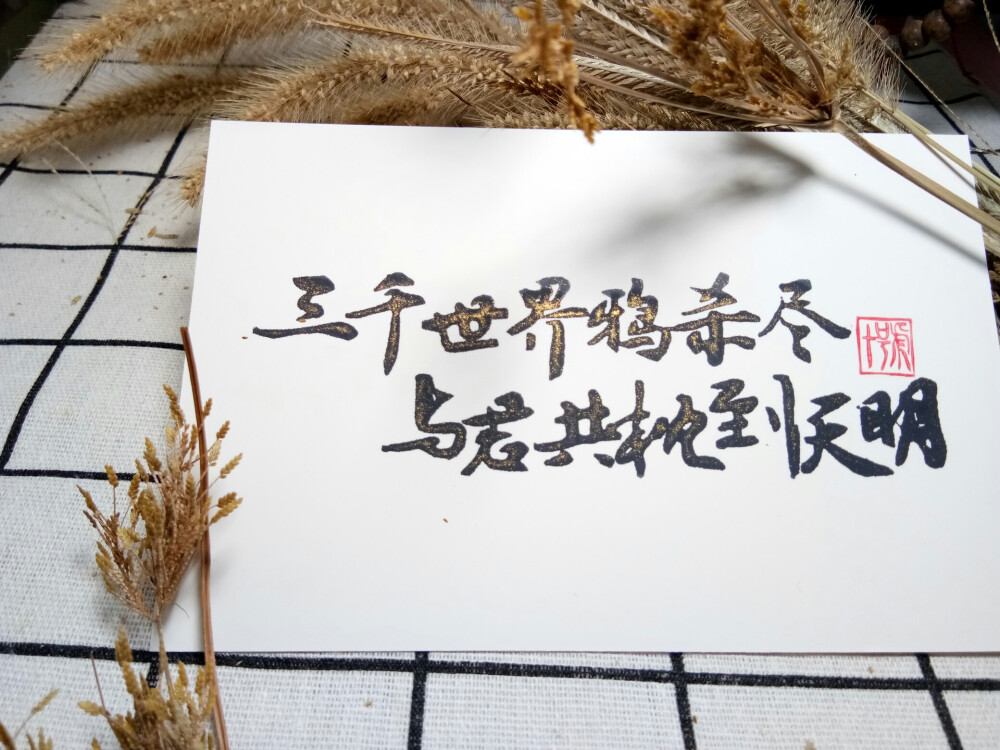 三千世界鸦杀尽
与君共枕到天明